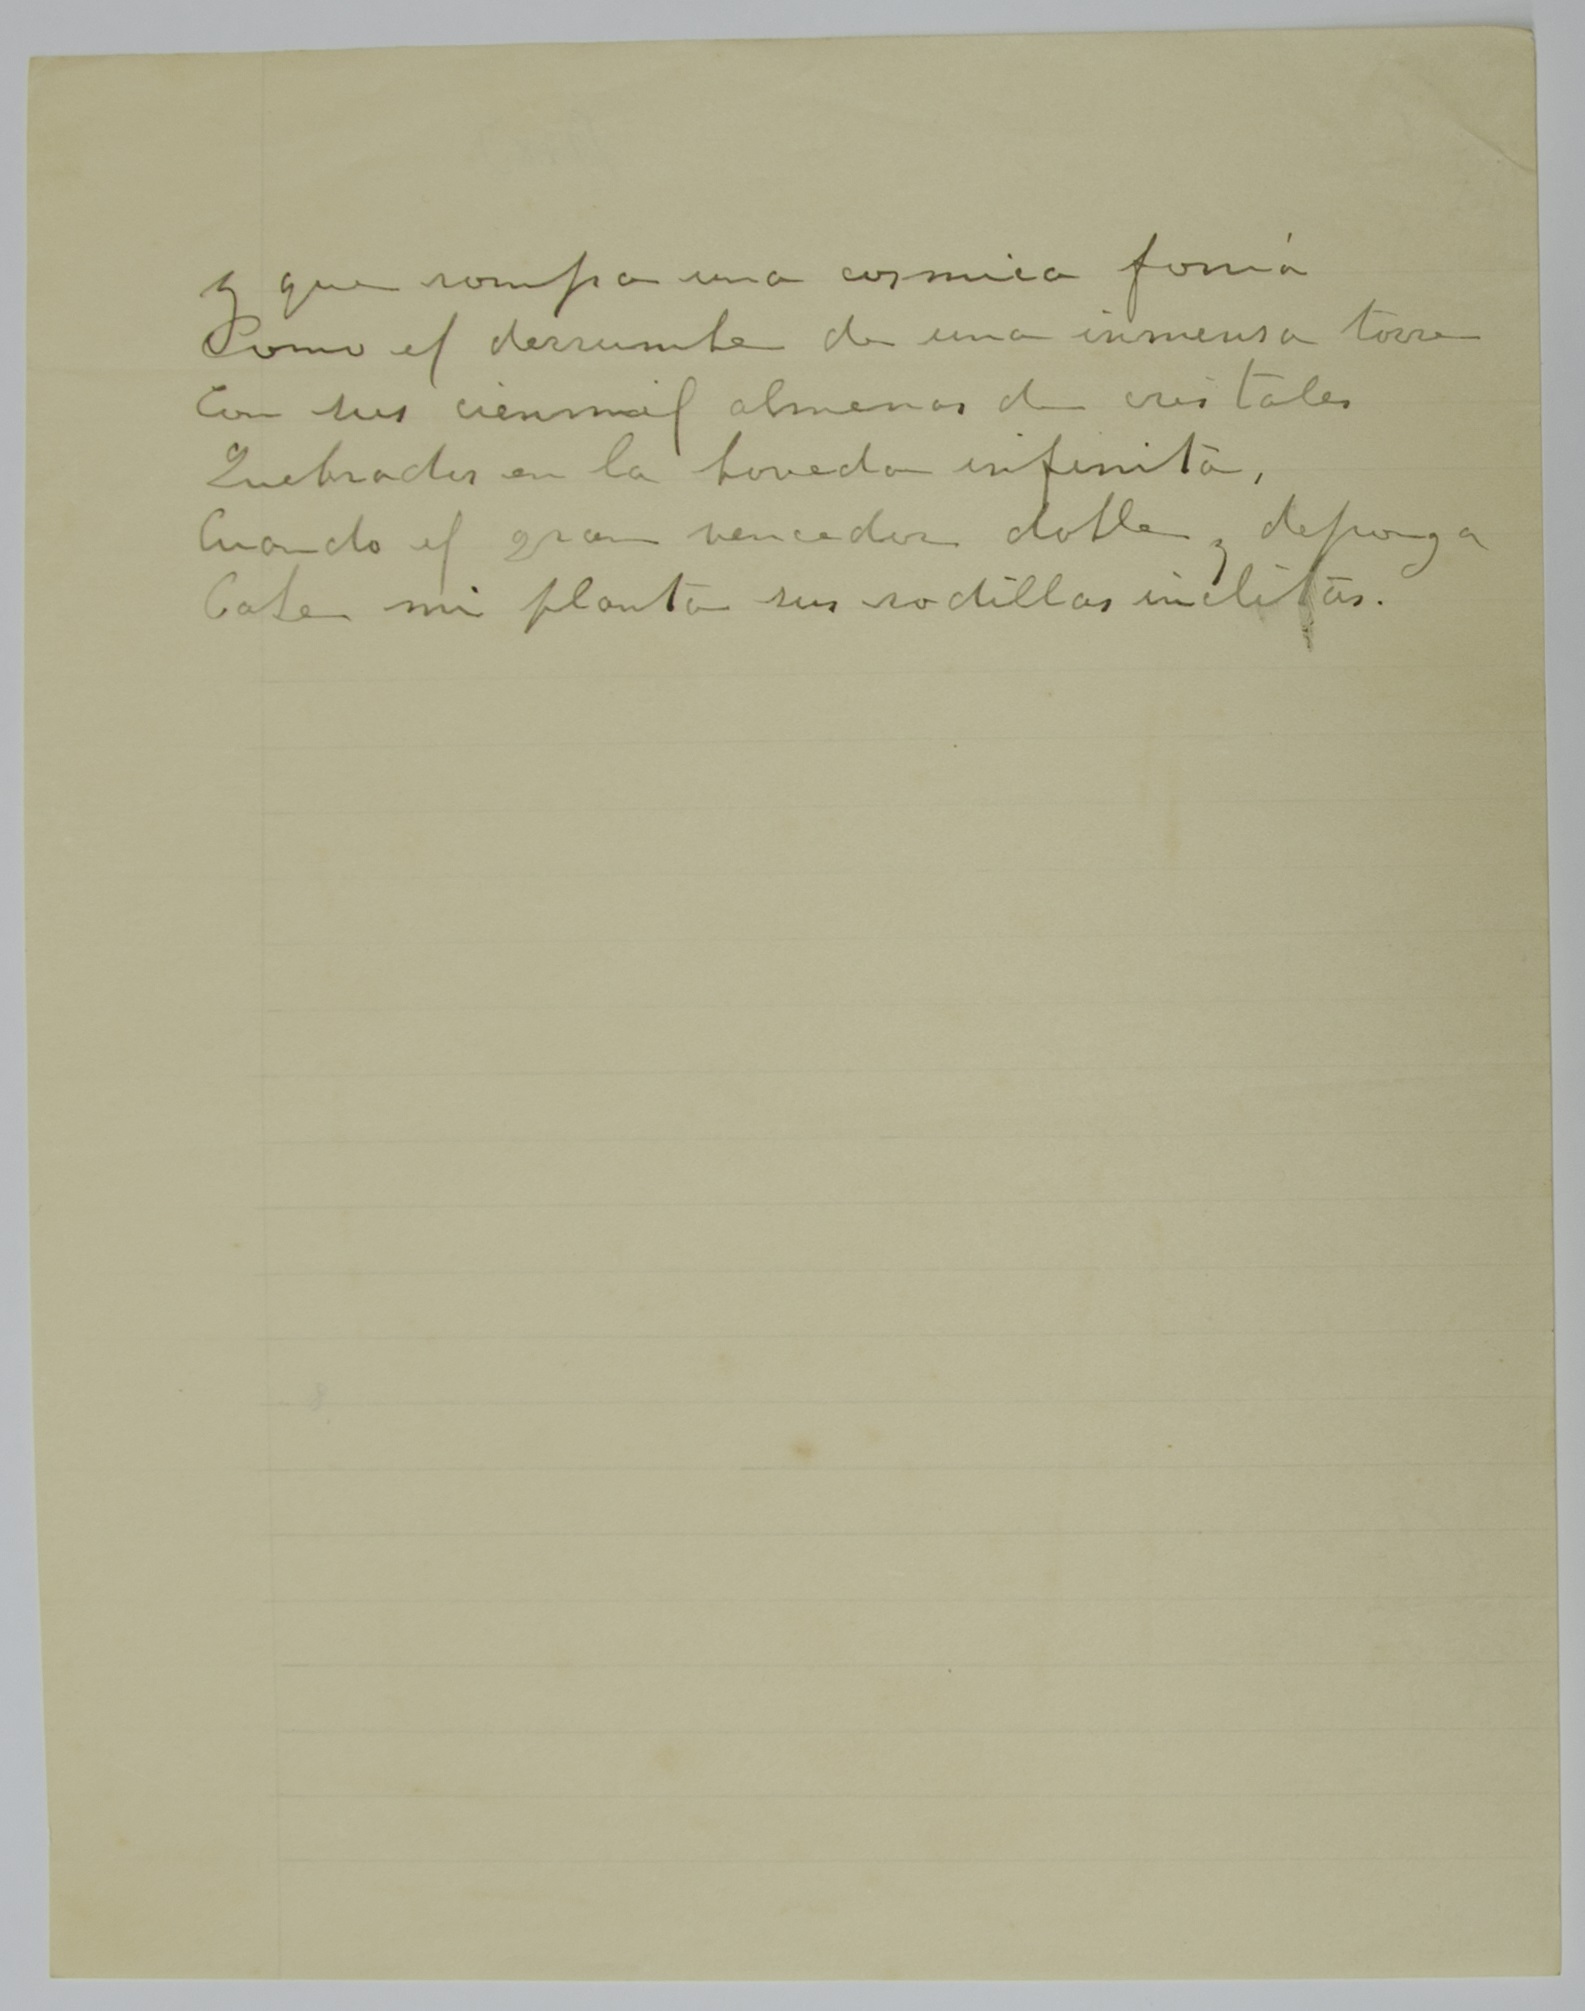 y que rompa una cosmica fonía
Como el derrumbe de una inmensa torre
Con sus cienmil almenas de cristales
Quebrados en la boveda infinita,
Cuando el gran vencedor doble y deponga
Cabe mi planta sus rodillas inclitas.